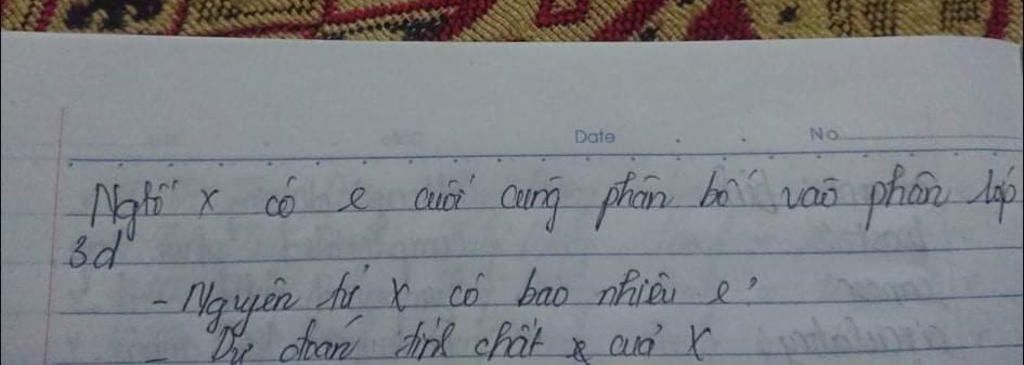 Date No
Ngtố X có e cuối cùng phân bố vào phân lớp
3d
- Nguyên tử X có bao nhiêu e?
- Dự đoán tính chất của X